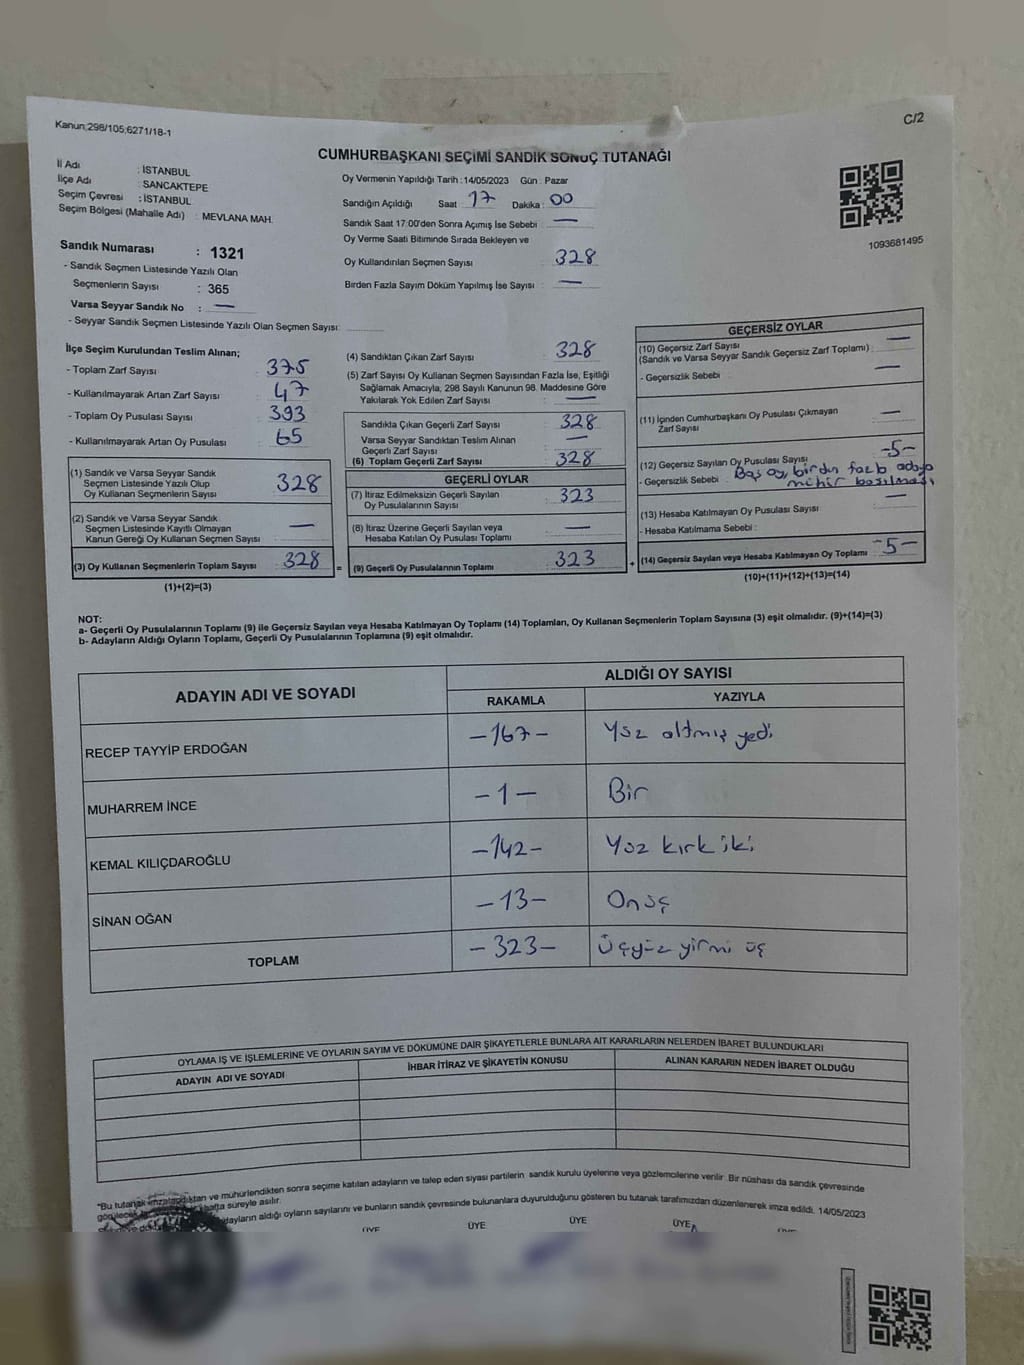 Kanun;298/105;6271/18-1
C/2
CUMHURBAŞKANI SEÇİMİ SANDIK SONUÇ TUTANAĞI
İl Adı : İSTANBUL
İlçe Adı : SANCAKTEPE
Seçim Çevresi : İSTANBUL
Seçim Bölgesi (Mahalle Adı) : MEVLANA MAH.
Oy Vermenin Yapıldığı Tarih : 14/05/2023 Gün : Pazar
Sandığın Açıldığı Saat : 17 Dakika : 00
Sandık Saat 17:00'den Sonra Açımış İse Sebebi : —
Oy Verme Saati Bitiminde Sırada Bekleyen ve
Oy Kullandırılan Seçmen Sayısı : 328
Birden Fazla Sayım Döküm Yapılmış İse Sayısı : —
1093681495
Sandık Numarası : 1321
- Sandık Seçmen Listesinde Yazılı Olan
Seçmenlerin Sayısı : 365
Varsa Seyyar Sandık No : —
- Seyyar Sandık Seçmen Listesinde Yazılı Olan Seçmen Sayısı:
İlçe Seçim Kurulundan Teslim Alınan;
- Toplam Zarf Sayısı : 375
- Kullanılmayarak Artan Zarf Sayısı : 47
- Toplam Oy Pusulası Sayısı : 393
- Kullanılmayarak Artan Oy Pusulası : 65
(1) Sandık ve Varsa Seyyar Sandık
Seçmen Listesinde Yazılı Olup
Oy Kullanan Seçmenlerin Sayısı 328
(2) Sandık ve Varsa Seyyar Sandık
Seçmen Listesinde Kayıtlı Olmayan
Kanun Gereği Oy Kullanan Seçmen Sayısı : —
(3) Oy Kullanan Seçmenlerin Toplam Sayısı 328
(1)+(2)=(3)
(4) Sandıktan Çıkan Zarf Sayısı : 328
(5) Zarf Sayısı Oy Kullanan Seçmen Sayısından Fazla İse, Eşitliği
Sağlamak Amacıyla, 298 Sayılı Kanunun 98. Maddesine Göre
Yakılarak Yok Edilen Zarf Sayısı : —
Sandıkta Çıkan Geçerli Zarf Sayısı : 328
Varsa Seyyar Sandıktan Teslim Alınan
Geçerli Zarf Sayısı : —
(6) Toplam Geçerli Zarf Sayısı : 328
GEÇERLİ OYLAR
(7) İtiraz Edilmeksizin Geçerli Sayılan
Oy Pusulalarının Sayısı : 323
(8) İtiraz Üzerine Geçerli Sayılan veya
Hesaba Katılan Oy Pusulası Toplamı : —
= (9) Geçerli Oy Pusulalarının Toplamı : 323 +
GEÇERSİZ OYLAR
(10) Geçersiz Zarf Sayısı : —
(Sandık ve Varsa Seyyar Sandık Geçersiz Zarf Toplamı)
- Geçersizlik Sebebi : —
(11) İçinden Cumhurbaşkanı Oy Pusulası Çıkmayan
Zarf Sayısı : —
(12) Geçersiz Sayılan Oy Pusulası Sayısı : -5-
- Geçersizlik Sebebi : Boş oy, birden fazla adaya
mühür basılması
(13) Hesaba Katılmayan Oy Pusulası Sayısı : —
- Hesaba Katılmama Sebebi :
(14) Geçersiz Sayılan veya Hesaba Katılmayan Oy Toplamı : -5-
(10)+(11)+(12)+(13)=(14)
NOT:
a- Geçerli Oy Pusulalarının Toplamı (9) ile Geçersiz Sayılan veya Hesaba Katılmayan Oy Toplamı (14) Toplamları, Oy Kullanan Seçmenlerin Toplam Sayısına (3) eşit olmalıdır. (9)+(14)=(3)
b- Adayların Aldığı Oyların Toplamı, Geçerli Oy Pusulalarının Toplamına (9) eşit olmalıdır.
ADAYIN ADI VE SOYADI ALDIĞI OY SAYISI
RAKAMLA YAZIYLA
RECEP TAYYİP ERDOĞAN -167- Yüz altmış yedi
MUHARREM İNCE -1- Bir
KEMAL KILIÇDAROĞLU -142- Yüz kırk iki
SİNAN OĞAN -13- Onüç
TOPLAM -323- Üçyüz yirmi üç
OYLAMA İŞ VE İŞLEMLERİNE VE OYLARIN SAYIM VE DÖKÜMÜNE DAİR ŞİKAYETLERLE BUNLARA AİT KARARLARIN NELERDEN İBARET BULUNDUKLARI
ADAYIN ADI VE SOYADI İHBAR İTİRAZ VE ŞİKAYETİN KONUSU ALINAN KARARIN NEDEN İBARET OLDUĞU
"Bu tutanak imzalandıktan ve mühürlendikten sonra seçime katılan adayların ve talep eden siyasi partilerin sandık kurulu üyelerine veya gözlemcilerine verilir. Bir nüshası da sandık çevresinde
görülecek hafta süreyle asılır.
adayların aldığı oyların sayılarını ve bunların sandık çevresinde bulunanlara duyurulduğunu gösteren bu tutanak tarafımızdan düzenlenerek imza edildi. 14/05/2023
ÜYE ÜYE ÜYE ÜYE